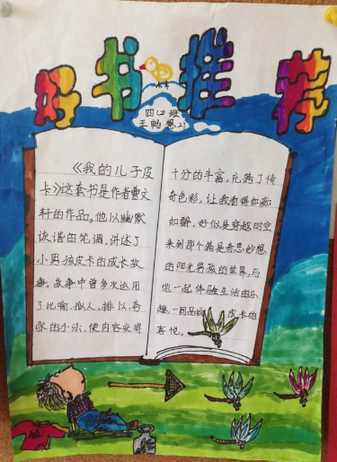 好书推荐
四(2)班
《我的儿子皮
卡》这套书是作者曹文
轩的作品。他以幽默
诙谐的笔调,讲述了
小男孩皮卡的成长故
事。故事中曾多次运用
了比喻、拟人、排比、夸
张的手法,使内容变得
十分的丰富,充满了传
奇色彩,让我看得如痴
如醉,好似是穿越时空
来到那个满是奇思妙想
的阳光男孩的世界,与
他一起体验生活的乐
趣,一同品味皮卡的
喜悦。